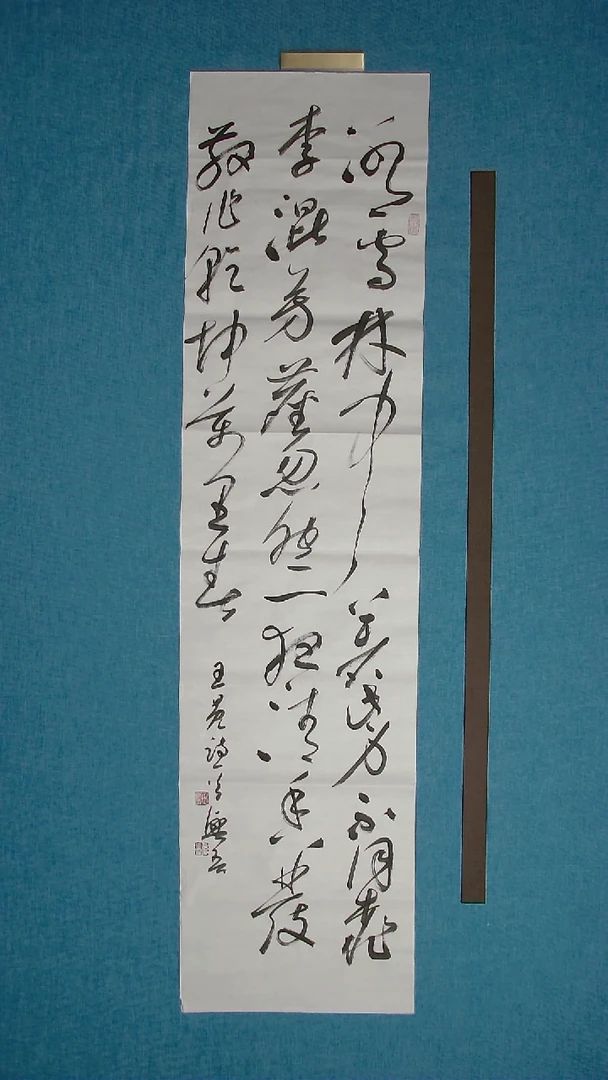 冰雪林中著此身不同桃
李混芳塵忽然一夜清香發
散作乾坤萬里春
王冕詩